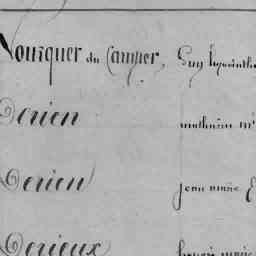 Nouvquer du Campier, Guy hyacinthe
Derien mathurin m
Derien jean marie
Derieux marie